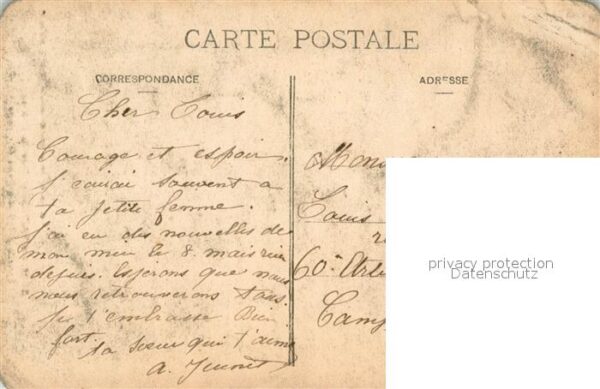 CARTE POSTALE
CORRESPONDANCE
ADRESSE
Cher Louis
Courage et espoir.
souvent a
ta petite femme.
J'ai eu des nouvelles de
mon le 8. mais rien
depuis. Esperons que nous
nous retrouverons tous.
Je t'embrasse Bien
fort.
ta soeur qui t'aime
a.
Mons
Louis
60e Artil
Camp
privacy protection
Datenschutz